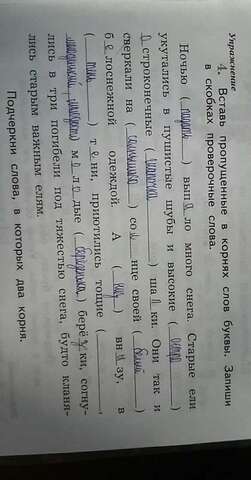 Упражнение
4. Вставь пропущенные в корнях слов буквы. Запиши
в скобках проверочные слова.
Ночью ( ) выпало много снега. Старые ели
укутались в пушистые шубы и высокие ( )
остроконечные ( ) шапки. Они так и
сверкали на ( ) солнце своей ( белый )
белоснежной одеждой. А ( низ ) внизу, в
( тень ) тени, приютились тощие ( ,
) молодые ( ) берёзки, согну-
лись в три погибели под тяжестью снега, будто кланя-
лись старым важным елям.
Подчеркни слова, в которых два корня.